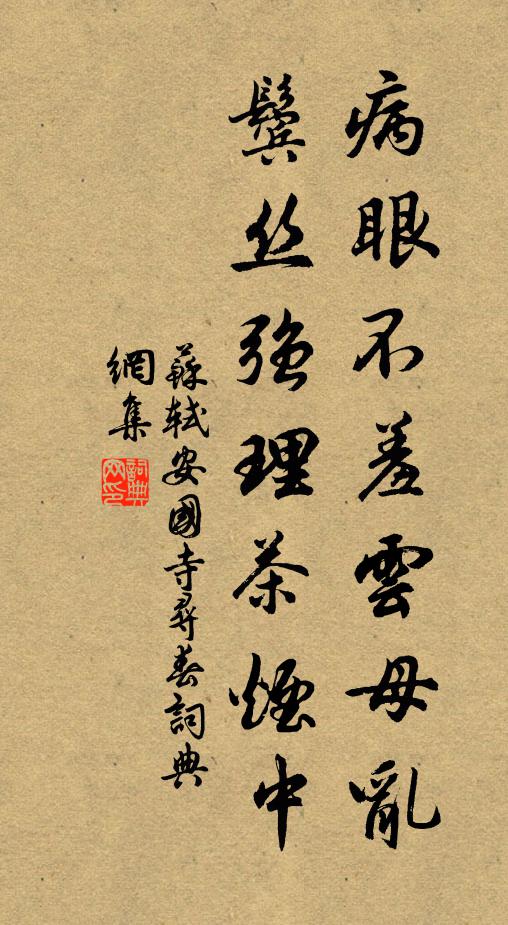 病眼不羞雲母亂
鬢丝強理茶煙中
蘇軾安國寺尋春詞典
網集
詞典
网印